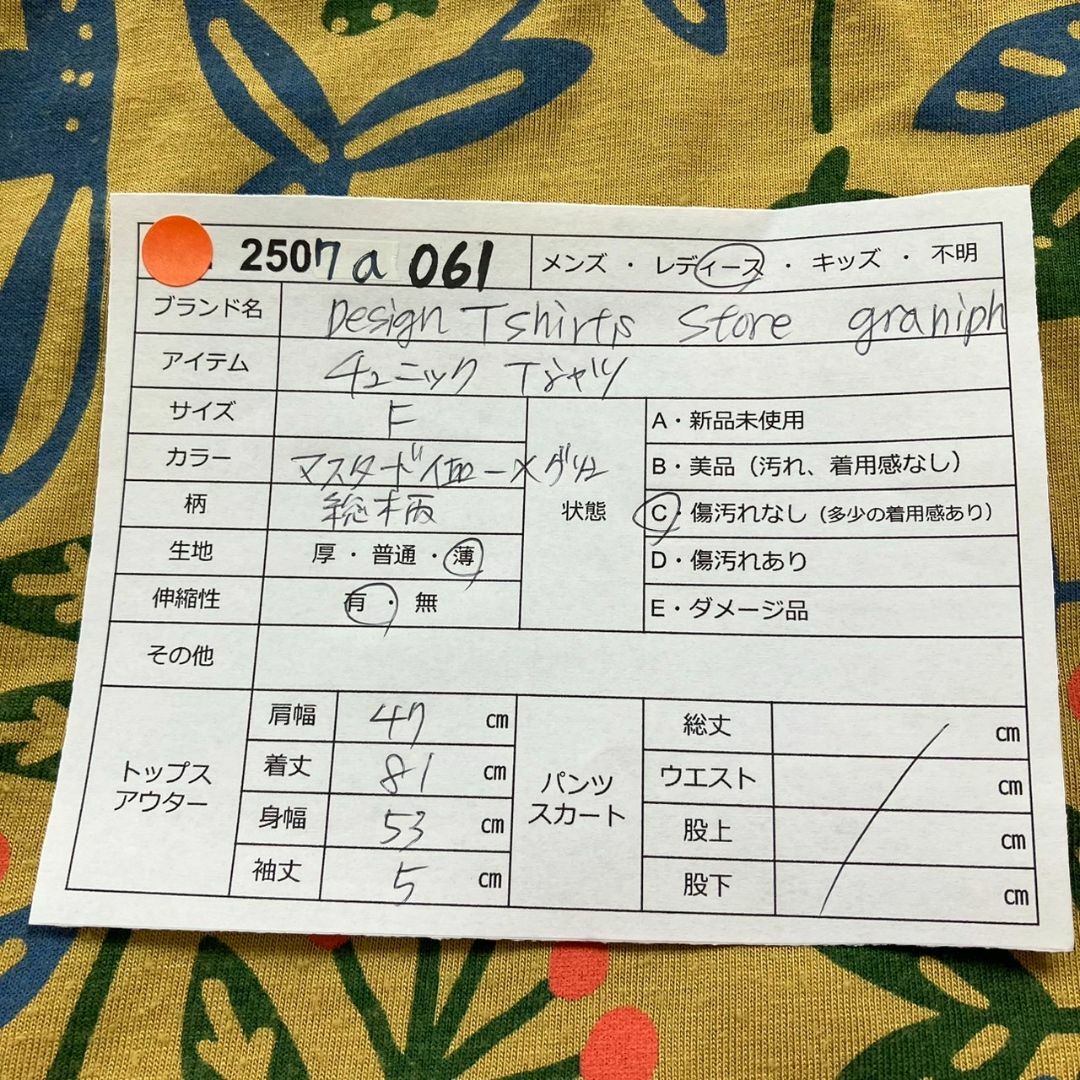 2507a 061 メンズ ・ レディース ・ キッズ ・ 不明
ブランド名 Design Tshirts Store graniph
アイテム チュニック Tシャツ
サイズ F
カラー マスタード
柄 総柄
生地 厚 ・ 普通 ・ 薄
伸縮性 有 ・ 無
状態
A・新品未使用
B・美品（汚れ、着用感なし）
C・傷汚れなし（多少の着用感あり）
D・傷汚れあり
E・ダメージ品
その他
トップス
アウター
肩幅 47 cm
着丈 81 cm
身幅 53 cm
袖丈 5 cm
パンツ
スカート
総丈 cm
ウエスト cm
股上 cm
股下 cm